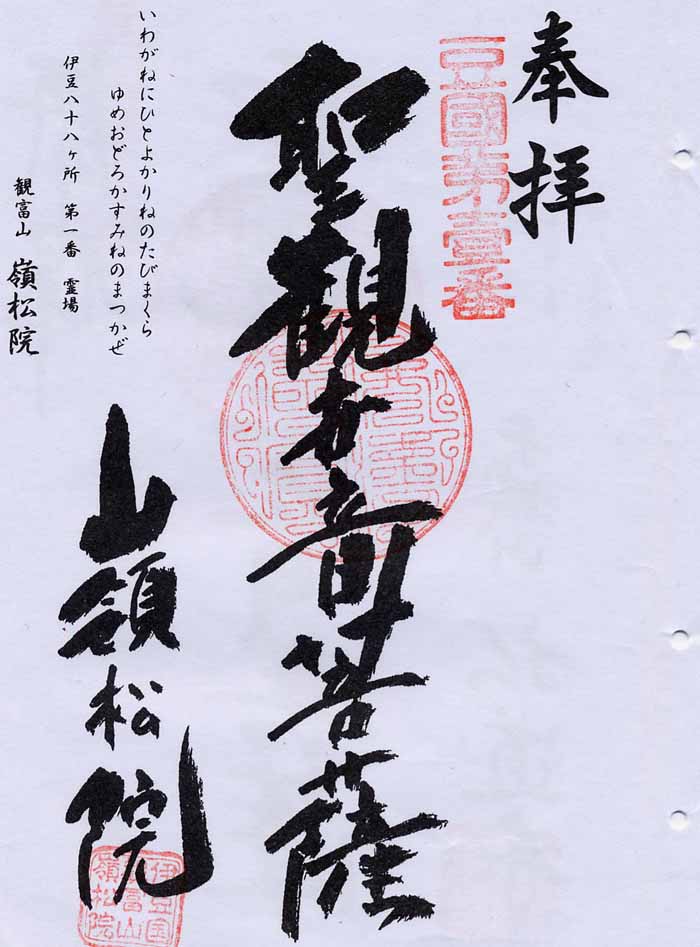 奉拝
豆國第壹番
聖観世音菩薩
いわがねにひとよかりねのたびまくら
ゆめおどろかすみねのまつかぜ
伊豆八十八ヶ所 第一番 霊場
観富山 嶺松院
嶺松院
伊豆国
観富山
嶺松院